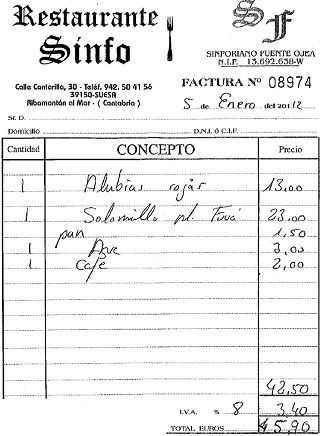 Restaurante
Sinfo
SF
SINFORIANO PUENTE OJEA
N.I.F. 13.692.638-W
Calle Cantarilla, 30 - Teléf. 942. 50 41 56
39150-SUESA
Ribamontán al Mar - ( Cantabria )
FACTURA Nº 08974
5 de Enero del 2012
Sr. D.
Domicilio D.N.I. ó C.I.F.
Cantidad CONCEPTO Precio
1 Alubias rojas 13,00
1 Solomillo pl. 23,00
pan 1,50
1 3,00
1 Cafe 2,00
42,50
I.V.A. % 8 3,40
TOTAL EUROS 45,90